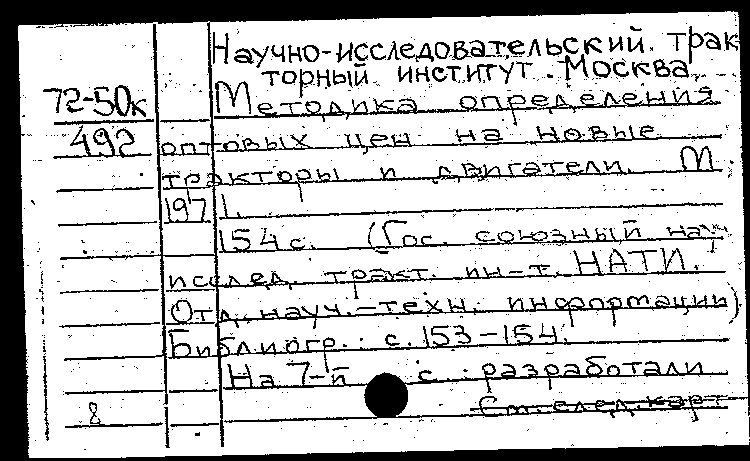 Научно-исследовательский. трак
торный институт. Москва.
72-50к Методика определения
492 оптовых цен на новые
тракторы и двигатели. М.
1971.
154 с. (Гос. союзный науч
исслед. тракт. ин-т. НАТИ.
Отд. науч.-техн. информации)
Библиогр.: с. 153-154.
На 7-й с.: разработали
8 См. след. карт